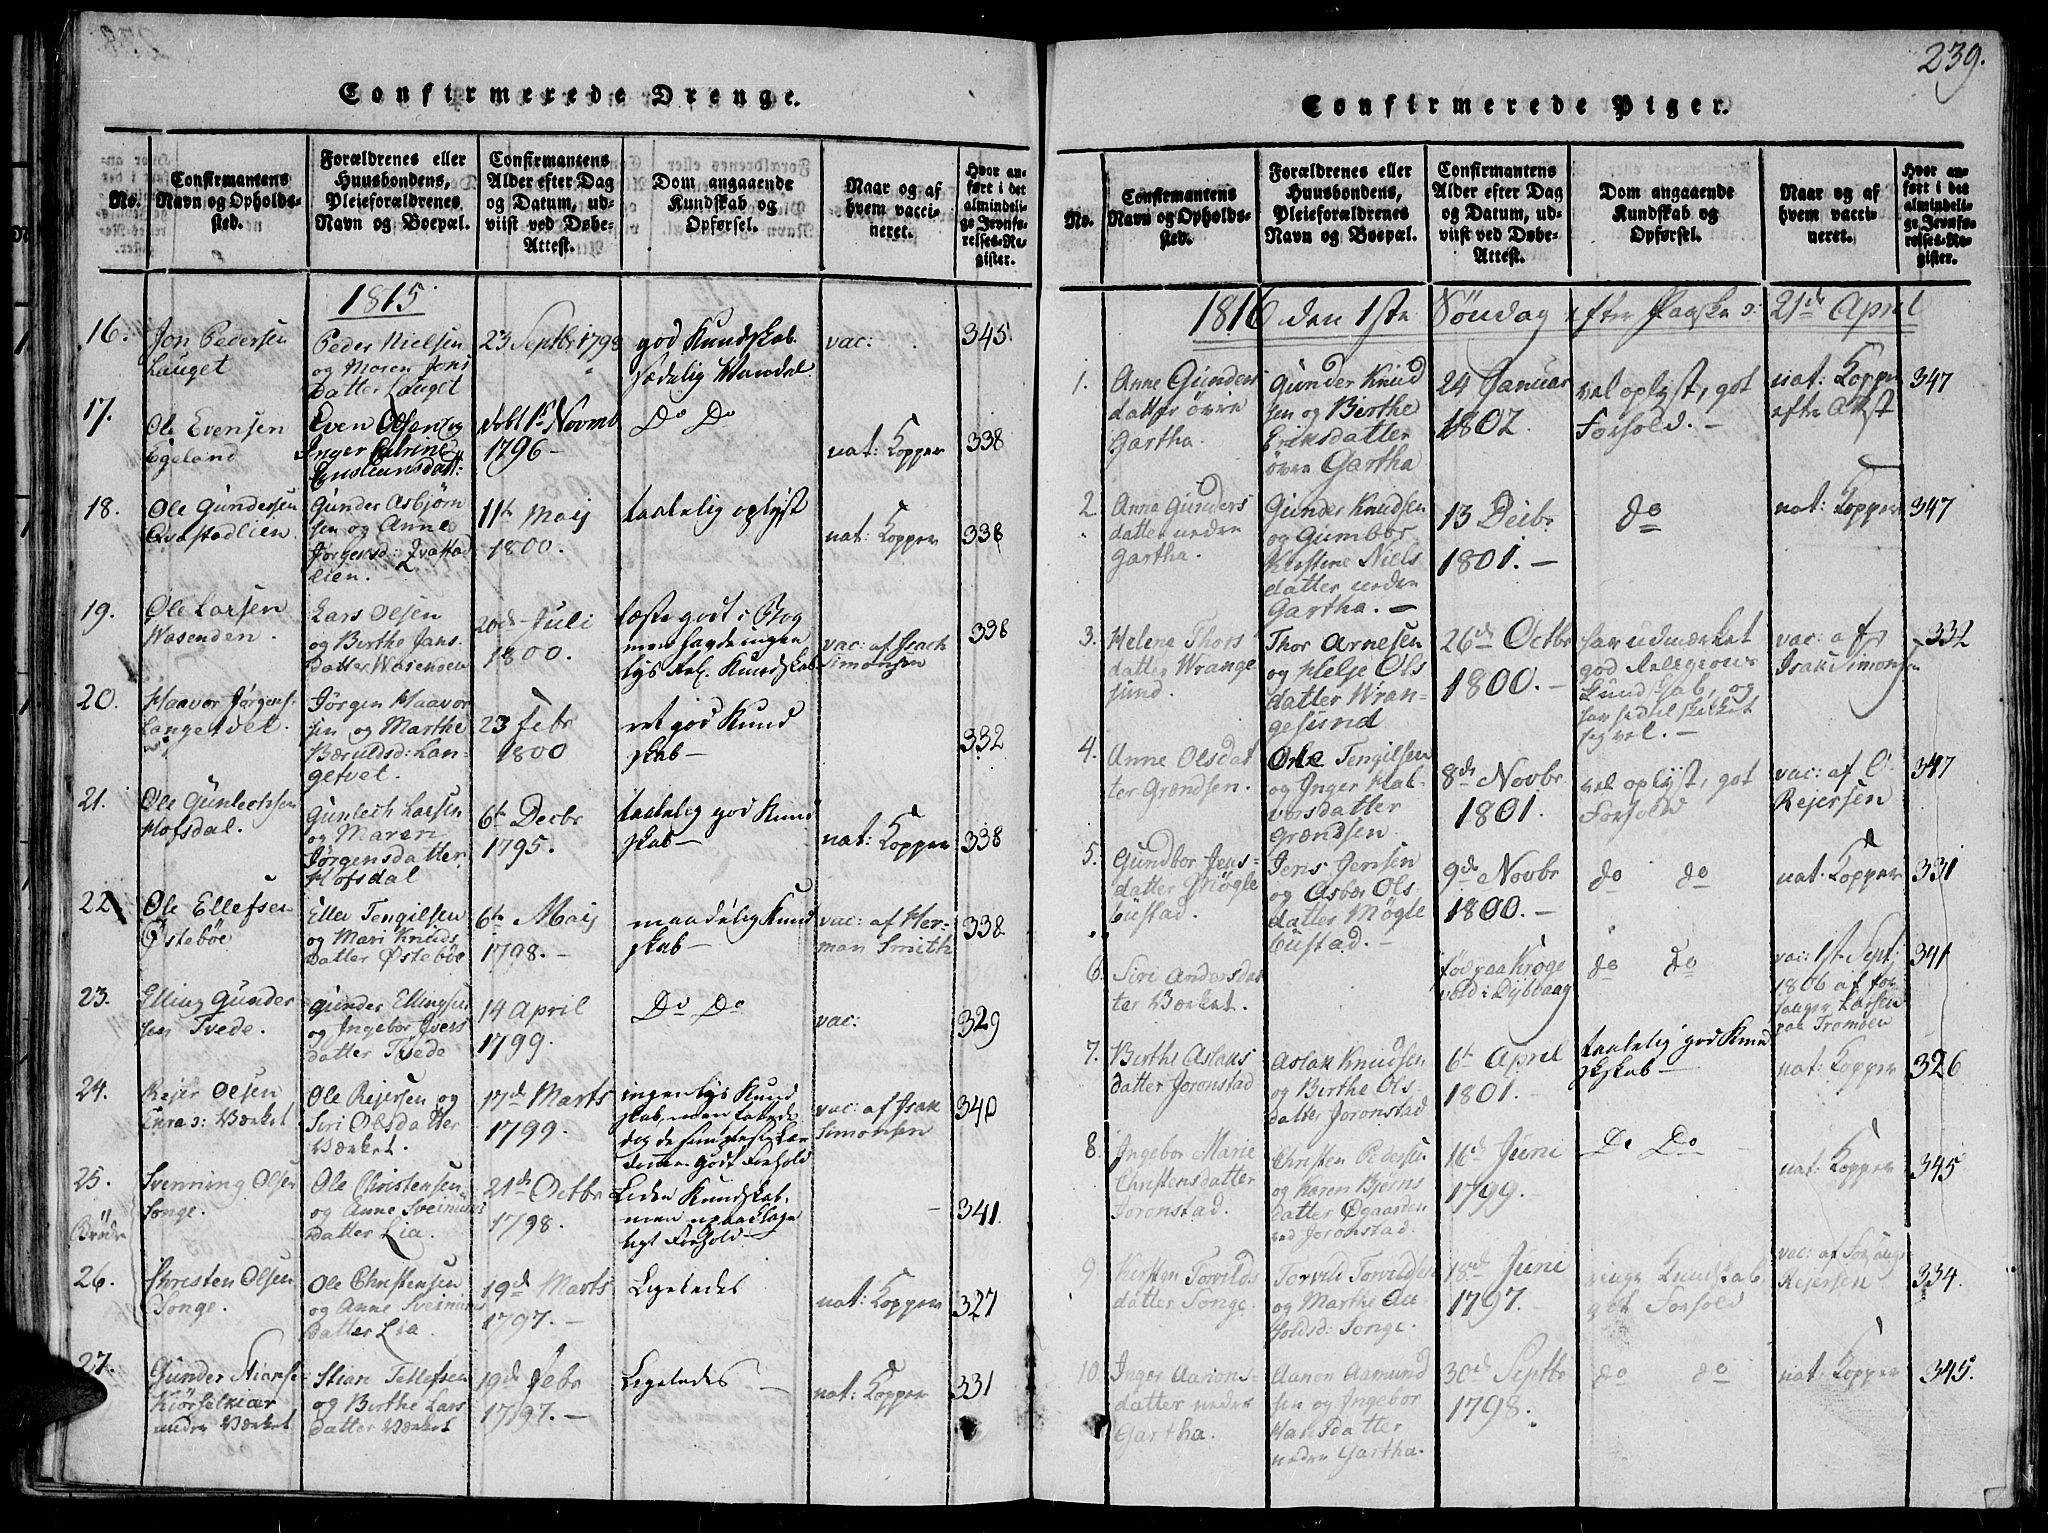 239.
Confirmerede Drenge.
No.
Confirmantens
Navn og Opholds-
sted.
Forældrenes eller
Huusbondens,
Pleieforældrenes
Navn og Boepæl.
Confirmantens
Alder efter Dag
og Datum, ud-
viist ved Døbe-
Attest.
Dom angaaende
Kundskab og
Opførsel.
Naar og af
hvem vacci-
neret.
Hvor an-
ført i det
almindeli-
ge Jevnfø-
relses-Re-
gister.
1815
16.
Jon Pedersen
Lauget
Peder Nielsen
og Maren Jons
Datter Lauget
23 Septbr 1798
god Kundskab.
sædelig Vandel
vac:
345.
17.
Ole Evensen
Egeland
Even Olsen og
Inger Catrine
1796 -
Do Do
nat: Kopper
338
18.
Ole Gundersen
Qvastadlien.
Gunder Asbjørn
sen og Anne
Jørgensd: Qvastad
lien.
11te Maij
1800.
taalelig oplyst
nat: Kopper
338
19.
Ole Larsen
Wasenden.
Lars Olsen
og Berthe Jans
datter Wasenden
20de Juli
1800.
læste godt i Bog
men havde ingen
lys Rel. Kundskab
vac: af Isach
Simonsen
338
20.
Haavor Jørgens:
Langetvet.
Jørgen Haavor
sen og Marthe
Bæruldsd: Lan-
getvet.
23 Febr
1800
ret god Kund
skab -
332
21.
Ole Gunlechsen
Hofsdal.
Gunlech Larsen
og Maren
Jørgensdatter
Hofsdal
6te Decbr
1795.
taalelig god Kund
skab -
nat: Kopper
338
22
Ole Ellefsen
Østebøe
Ellev Tengilsen
og Mari Knuds
Datter Østebøe
6te Maij
1798. -
maadelig Kund
skab -
vac: af Her-
man Smith
338
23.
Elling Gunder
sen Tvede.
Gunder Ellingsen
og Ingebor Ivers
datter Tvede
14 April
1799.
Do Do
vac:
329
24.
Rejer Olsen
Værket
Ole Rejersen og
Siri Olsdatter
Værket.
17de Marts
1799.
ingen lys Kund
skab, men
godt Forhold
vac: af Isak
Simonsen
340
25.
Svenning Olsen
Songe.
Ole Christensen
og Anne Sveinung
Datter Lia.
21de Octbr
1798.
Liden Kundskab.
men upaaklage
ligt Forhold -
341.
Brødre
26.
Christen Olsen
Songe.
Ole Christensen
og Anne Sveinungs
datter Lia
19de Marts
1797. -
Ligeledes
nat: Kopper
327
27.
Gunder Stianse
Kiørselkiær
under Værket
Stian Tellefsen
og Berthe Lars
datter Værket
19de Febr
1797. -
Ligeledes
nat: Kopper
331
Confirmerede Piger.
No.
Confirmantens
Navn og Opholds-
sted.
Forældrenes eller
Huusbondens,
Pleieforældrenes
Navn og Boepæl.
Confirmantens
Alder efter Dag
og Datum, ud-
viist ved Døbe-
Attest.
Dom angaaende
Kundskab og
Opførsel.
Naar og af
hvem vacci-
neret.
Hvor an-
ført i det
almindeli-
ge Jevnfø-
relses-Re-
gister.
1816 den 1ste Søndag efter Paaske ɔ: 21de April
1.
Anne Gunders
datter øvre
Gartha.
Gunder Knud
sen og Berthe
Eriksdatter
øvre Gartha
24 Januar
1802.
vel oplyst, got
Forhold. -
nat: Kopper
efter Attest
347
2
Anna Gunders
datter nedre
Gartha.
Gunder Knudsen
og Gumbor
Kirstine Niels
datter nedre
Gartha. -
13 Decbr
1801. -
do
nat: Kopper
347
3.
Helena Thors
datter Wrange
sund.
Thor Arnesen
og Helje Ols
datter Wran-
gesund
26de Octbr
1800. -
har udmærket
god Religions
Kundskab, og
har sædel skikket
sig vel. -
vac: af
Isak Simonsen
332
4.
Anne Olsdat
ter Grændsen.
Ole Tengilsen
og Inger Hal-
vorsdatter
Grændsen
8de Novbr
1801.
vel oplyst, got
Forhold
vac: af O.
Rejersen
347
5.
Gundbor Jens-
datter Møgle
bustad.
Jens Jensen
og Asber Ols-
datter Møgle
bustad. -
9de Novbr
1800. -
do do
nat. Kopper
331
6.
Siri Andersdat
ter Værket.
fød paa Kroge
vold i Dybvaag
do do
vac: 1st Sept:
1806 af For
sanger Larsen
paa Tromøen
341
7.
Berthe Aslaks
datter Joronstad
Aslak Knudsen
og Berthe Ols-
datter Joronstad
6te April
1801.
taalelig god Kund
skab -
nat: Kopper
326
8.
Ingebor Marie
Christensdatter
Joronstad.
Christen Pedersen
og Karen Bjørns
datter Øgaarden
ved Joronstad.
16de Juni
1799. -
Do Do
nat: Kopper
345
9.
Kirsten Torvilds
datter Songe.
Torvild Torvildsen
og Marthe Au
Songe.
18de Juni
1797. -
ringe Kundskab
got Forhold
vac: af Forsanger
Rejersen
334.
10.
Inger Aanons-
datter nedre
Gartha.
Aanon Aamund
sen og Ingebor
Hansdatter
nedre Gartha.
30de Septbr
1798.
do do
nat: Kopper
345.